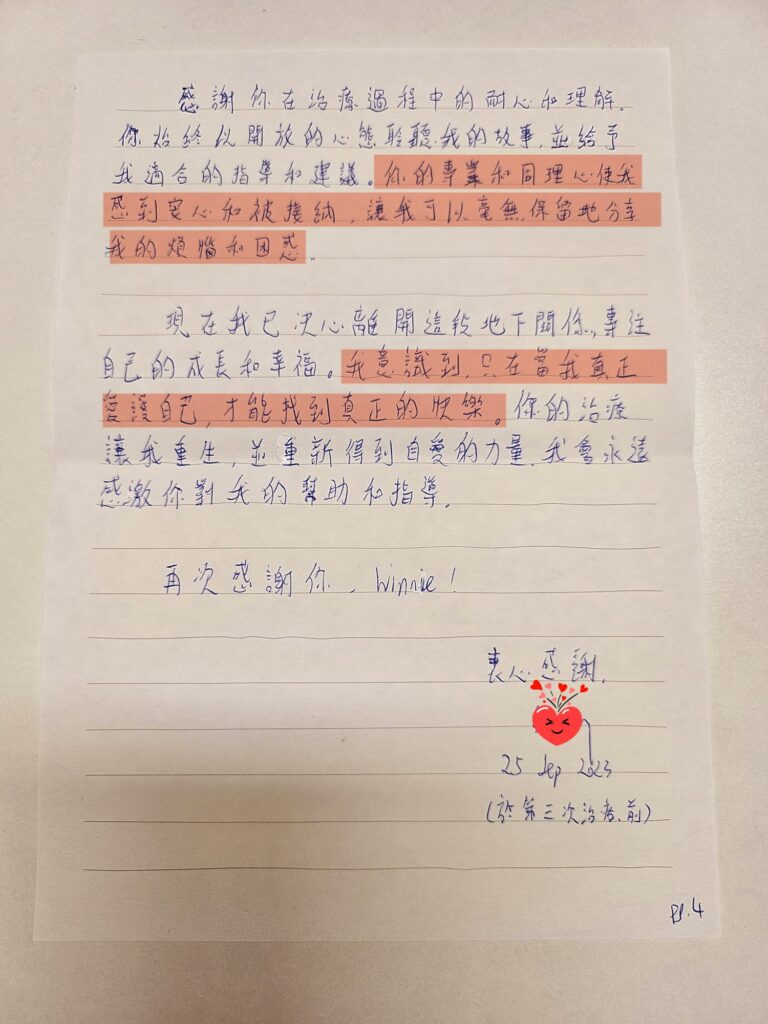 感謝你在治療過程中的耐心和理解。
你始終以開放的心態聆聽我的故事,並給予
我適合的指導和建議。你的專業和同理心使我
感到安心和被接納,讓我可以毫無保留地分享
我的煩惱和困惑。
現在我已決心離開這段地下關係,專注
自己的成長和幸福。我意識到,只在當我真正
愛護自己,才能找到真正的快樂。你的治療
讓我重生,並重新得到自愛的力量,我會永遠
感激你對我的幫助和指導。
再次感謝你,Winnie!
衷心感謝,
25 Sep 2023
(於第三次治療前)
P.4